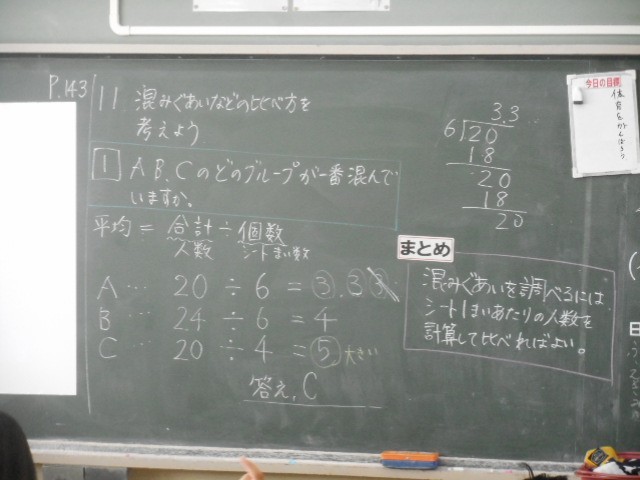 P.143
11 混みぐあいなどの比べ方を
考えよう
1 A、B、Cのどのグループが一番混んで
いますか。
平均 = 合計 ÷ 個数
人数 シートまい数
A … 20 ÷ 6 = 3.33
B … 24 ÷ 6 = 4
C … 20 ÷ 4 = 5 大きい
答え、C
3.3…
6)20
18
20
18
20
まとめ
混みぐあいを調べるには
シート1まいあたりの人数を
計算して比べればよい。
今日の目標
体育をがんばろう